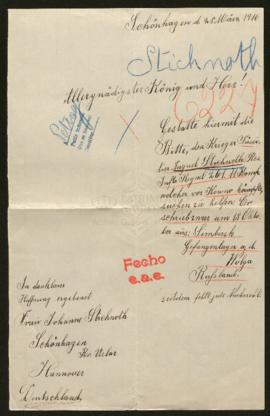 Schönhagen d. 28. März 1916
Stichnoth
Allergnädigster König und Herr!
6229
Gestatte hiermit die
Bitte, den Krieger
August Stichnoth Res
Inft. Regmt
welcher vor Kowno kämpfte,
suchen zu helfen. Der
schrieb uns am 18 Okto
ber aus: Simbirsk
Gefangenlager a. d.
Wolga
Rußland.
seitdem fehlt jede Nachricht.
Fecho
e.a.e.
In dankbarer
Hoffnung ergebenst
Frau Johanne Stichnoth
Schönhagen
Kr. Uslar
Hannover
Deutschland.